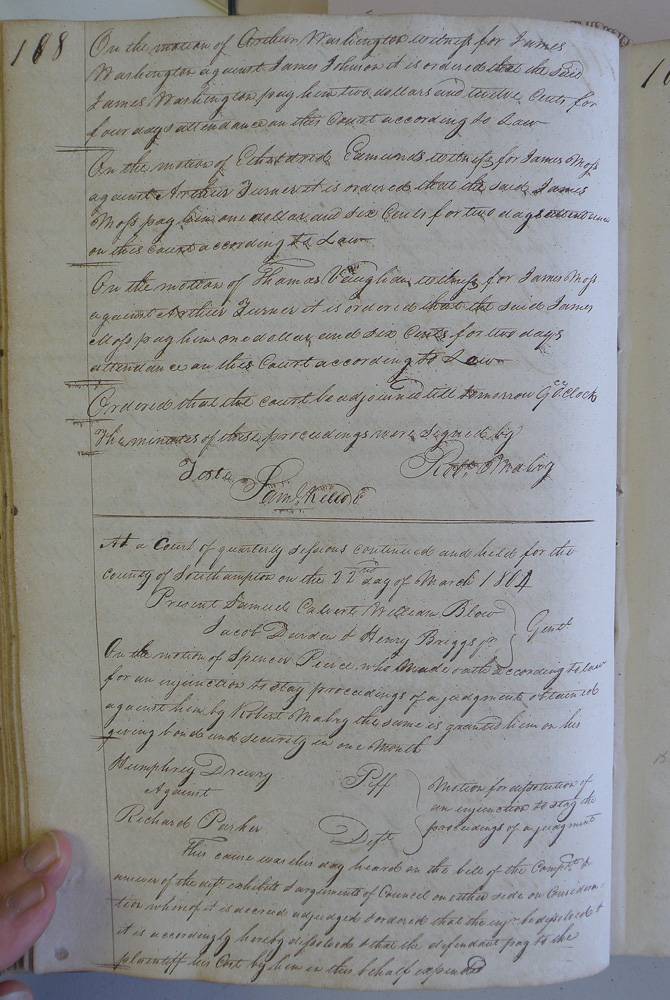 188
On the motion of Arthur Washington witness for James
Washington against James Johnson it is ordered that the said
James Washington pay him two dollars and twelve Cents for
four days attendance on this Court according to Law
On the motion of Edmunds witness for James Moss
against Arthur Turner it is ordered that the said James
Moss pay him one dollar and six Cents for two days attendance
on this court according to Law
On the motion of Thomas Vaughan witness for James Moss
against Arthur Turner it is ordered that the said James
Moss pay him one dollar and six Cents for two days
attendance on this Court according to Law
Ordered that the court be adjourned till tomorrow 9 OClock
The minutes of these proceedings were signed by
Teste Robt. Mabry
Saml. Kello C
At a Court of quarterly sessions continued and held for the
county of Southampton on the 22nd day of March 1804
Present Samuel Calvert William Blow
Jacob Darden & Henry Briggs jr Gent
On the motion of Spencer Pierce who made oath according to law
for an injunction to stay proceedings of a judgment obtained
against him by Robert Mabry the same is granted him on his
giving bond and security in one Month
Humphrey Drewry Plff
Against
Richard Parker Deft
Motion for dissolution of
an injunction to stay the
proceedings of a judgment
This cause was this day heard on the bill of the Complt. &
answer of the deft exhibits & arguments of Council on either side on Considera-
tion whereof it is decreed adjudged & ordered that the injn. be dissolved &
it is accordingly hereby dissolved & that the defendant pay to the
plaintiff his Cost by him in this behalf expended